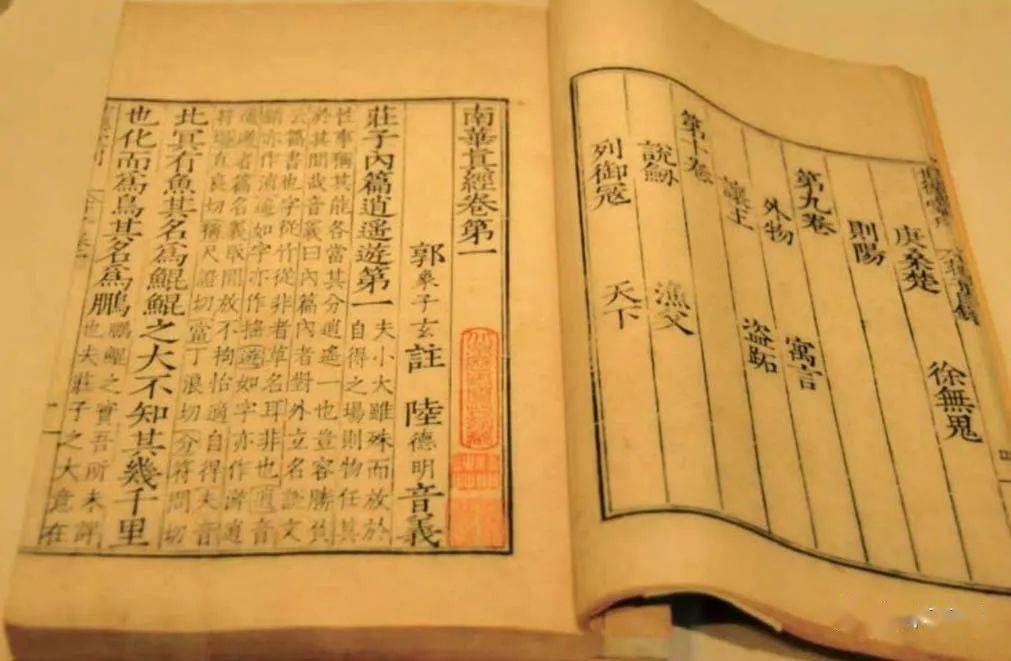 庚桑楚 徐無鬼
則陽
第九卷
外物 寓言
讓王 盜跖
第十卷
說劒 漁父
列御寇 天下
南華真經卷第一
郭象子玄註 陸德明音義
莊子內篇逍遙遊第一 夫小大雖殊而放於自得之場則物任其
性事稱其能各當其分逍遥一也豈容勝負
於其間哉音義曰內篇內者對外立名說文
云篇書也字從竹從非者草名耳非也逍音
銷亦作消遥如字亦作搖遊如字亦作游逍
遥遊者篇名義取閒放不拘怡適自得夫音
符場直良切稱尺證切當丁浪切分符問切
北冥有魚其名為鯤鯤之大不知其幾千里
也化而為鳥其名為鵬 鵬鯤之實吾所未詳也夫莊子之大意在